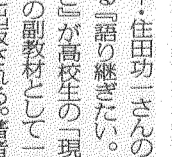 ・住田功一さんの
る『語り継ぎたい。
と』が高校生の「現
の副教材として一
出版される。著者